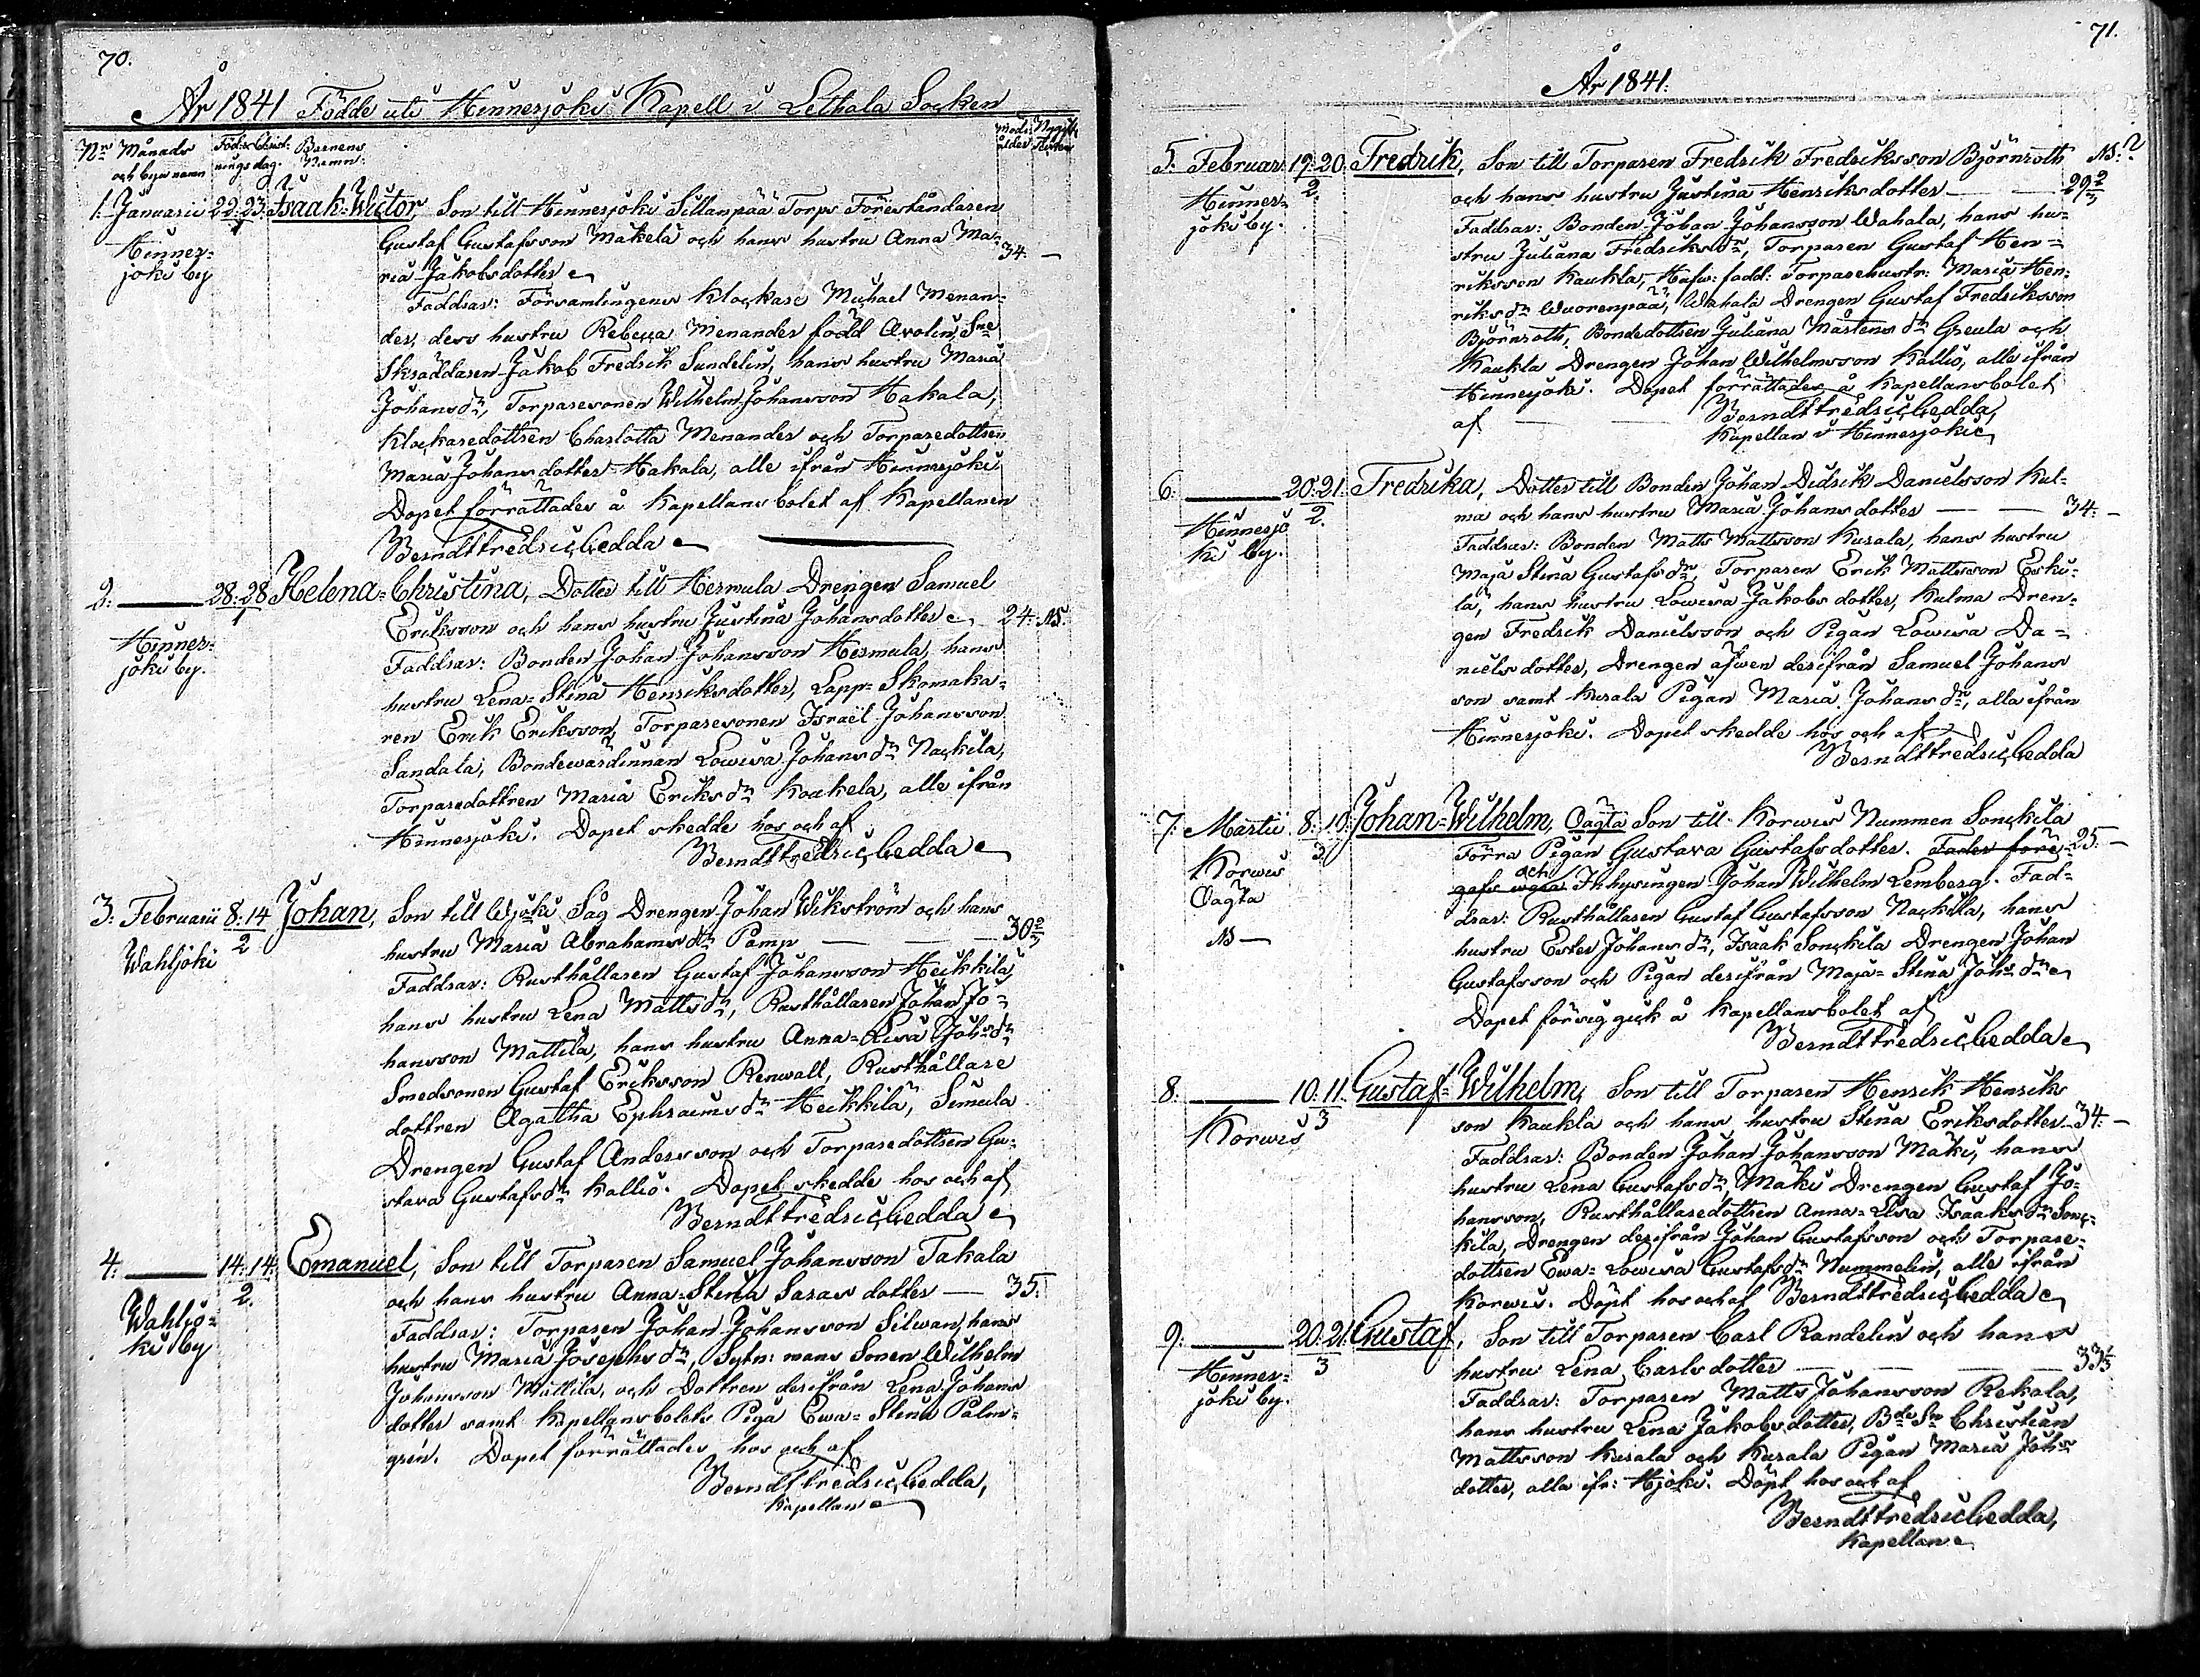 70.
År 1841 Födde uti Hinnerjoki Kapell i Lethala Socken
Nr Månads och byns namn
Föd: o Christ: nings dag.
Barnens Namn:
Mods ålder
1. Januarii 22.23. Isaak-Wictor, Son till Hinnerjoki Sillanpää Torps Föreståndaren
1
Hinner=
joki by
Gustaf Gustafsson Mäkelä och hans hustru Anna Ma=
34. —
ria Jakobsdotter
Faddrar: Församlingens Klockare Michael Menan=
der, dess hustru Rebecca Menander född Avolin, Sne
Skräddaren Jakob Fredrik Sundelin, hans hustru Maria
Johansdr, Torparesonen Wilhelm Johansson Hakala,
Klockaredottren Charlotta Menander och Torparedottren
Maria Johansdotter Hakala, alle ifrån Hinnerjoki
Dopet förrättades å Kapellansbolet af Kapellanen
Berndt Fredric Gedda
2. — 28.28 Helena=Christina, Dotter till Hermula Drengen Samuel
1
Hinner=
joki by.
Eriksson och hans hustru Justina Johansdotter 24. NB.
Faddrar: Bonden Johan Johansson Hermula, hans
hustru Lena=Stina Henriksdotter, Lapp=Skomaka=
ren Erik Eriksson, Torparesonen Israël Johansson
Sandala, Bondewärdinnan Lowisa Johansdr Nackila,
Torparedottren Maria Eriksdr Koukela, alle ifrån
Hinnerjoki. Dopet skedde hos och af
Berndt Fredric Gedda
3. Februarii 8.14 Johan, Son till Wjoki Såg Drengen Johan Wikström och hans
2
Wahljoki
hustru Maria Abrahamsdr Pamp — — 30 2/3
Faddrar: Rusthållaren Gustaf Johansson Heikkilä,
hans hustru Lena Mattsdr, Rusthållaren Johan Jo=
hansson Mattila, hans hustru Anna=Lisa Johsdr
Smedsonen Gustaf Eriksson Renwall, Rusthållare
dottren Agatha Ephraimsdr Heikkilä, Simula
Drengen Gustaf Andersson och Torparedottren Gu=
stava Gustafsdr Kallio. Dopet skedde hos och af
Berndt Fredric Gedda
4. — 14.14. Emanuel, Son till Torparen Samuel Johansson Takala
2.
Wahljo=
ki by
och hans hustru Anna=Stina Sarasdotter — 35.
Faddrar: Torparen Johan Johansson Silwan, hans
hustru Maria Josephsdr, Sytn: mans Sonen Wilhelm
Johansson Mattila, och Dottren derifrån Lena Johans
dotter samt Kapellansbolets Piga Ewa=Stina Palm=
grén. Dopet förrättades hos och af
Berndt Fredric Gedda,
Kapellan
71.
År 1841.
5. Februar. 19.20. Fredrik, Son till Torparen Fredrik Fredriksson Björnroth NB:?
2.
Hinner=
joki by.
och hans hustru Justina Henriksdotter — — 29 2/3
Faddrar: Bonden Johan Johansson Wahala, hans hu=
stru Juliana Fredriksdr, Torparen Gustaf Hen=
riksson Kaukla, Hafw: fadd: Torparehustr: Maria Hen=
riksdr Wuorenpää, Wahala Drengen Gustaf Fredriksson
Björnroth, Bondedottren Juliana Mårtensdr Greula och
Kaukla Drengen Johan Wilhelmsson Kallio, alle ifrån
Hinnerjoki. Dopet förrättades å Kapellansbolet
af — — Berndt Fredric Gedda,
Kapellan i Hinnerjoki
6. — 20.21. Fredrika, Dotter till Bonden Johan Didrik Danielsson Kul=
2.
Hinnerjo
ki by.
ma och hans hustru Maria Johansdotter — — 34. —
Faddrar: Bonden Matts Mattsson Kurala, hans hustru
Maja Stina Gustafsdr, Torparen Erik Mattsson Eski=
lä, hans hustru Lowisa Jakobsdotter, Kulma Dren=
gen Fredrik Danielsson och Pigan Lowisa Da=
nielsdotter, Drengen äfwen derifrån Samuel Johans
son samt Kurala Pigan Maria Johansdr, alla ifrån
Hinnerjoki. Dopet skedde hos och af
Berndt Fredric Gedda
7. Martii 8.10. Johan=Wilhelm, Oägta Son till Korwis Nummen Sonckila
3
Korwis
Oägta
NB —
förra Pigan Gustava Gustafsdotter. Fader före= 25. —
gafs och Inhysingen Johan Wilhelm Lemberg. Fad=
drar: Rusthållaren Gustaf Gustafsson Nackila, hans
hustru Ester Johansdr, Isaak Sonckila Drengen Johan
Gustafsson och Pigan derifrån Maja=Stina Johsdr
Dopet försiggick å Kapellansbolet af
Berndt Fredric Gedda
8. — 10.11. Gustaf=Wilhelm, Son till Torparen Henrik Henriks
3
Korwis
son Kaukla och hans hustru Stina Eriksdotter 34. —
Faddrar: Bonden Johan Johansson Mäki, hans
hustru Lena Gustafsdr, Mäki Drengen Gustaf Jo=
hansson, Rusthållaredottren Anna=Lisa Isaaksdr Sonc=
kila, Drengen derifrån Johan Gustafsson och Torpare=
dottren Ewa=Lowisa Gustafsdr Nummelin, alle ifrån
Korwis. Döpt hos och af Berndt Fredric Gedda
9. — 20.21. Gustaf, Son till Torparen Carl Randelin och hans
3
Hinner=
joki by.
hustru Lena Carlsdotter — — — 33 1/3
Faddrar: Torparen Matts Johansson Rekola,
hans hustru Lena Jakobsdotter, Bde Sn Christian
Mattsson Kurala och Kurala Pigan Maria Johs
dotter, alla ifr: Hjoki. Döpt hos och af
Berndt Fredric Gedda,
Kapellan